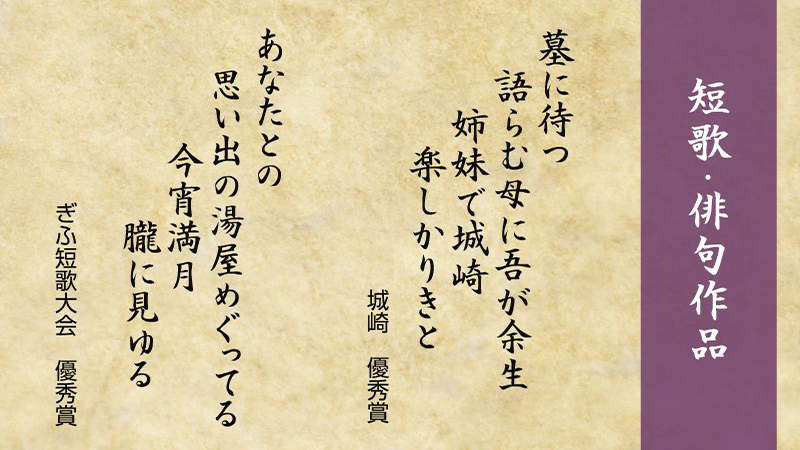 短歌・俳句作品
墓に待つ
語らむ母に吾が余生
姉妹で城崎
楽しかりきと
城崎　優秀賞
あなたとの
思い出の湯屋めぐってる
今宵満月
朧に見ゆる
ぎふ短歌大会　優秀賞